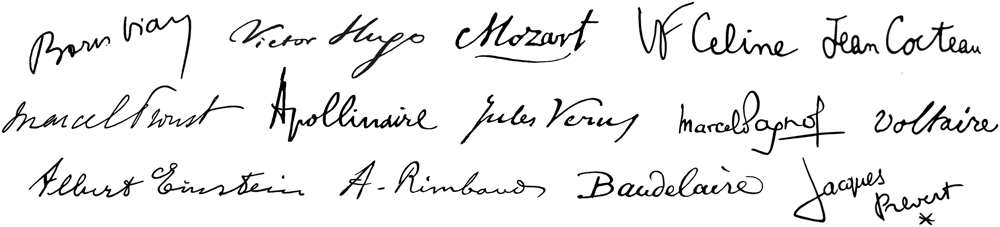 Boris Vian Victor Hugo Mozart LF Celine Jean Cocteau
Marcel Proust Apollinaire Jules Verne Marcel Pagnol Voltaire
Albert Einstein A-Rimbaud Baudelaire Jacques Prevert